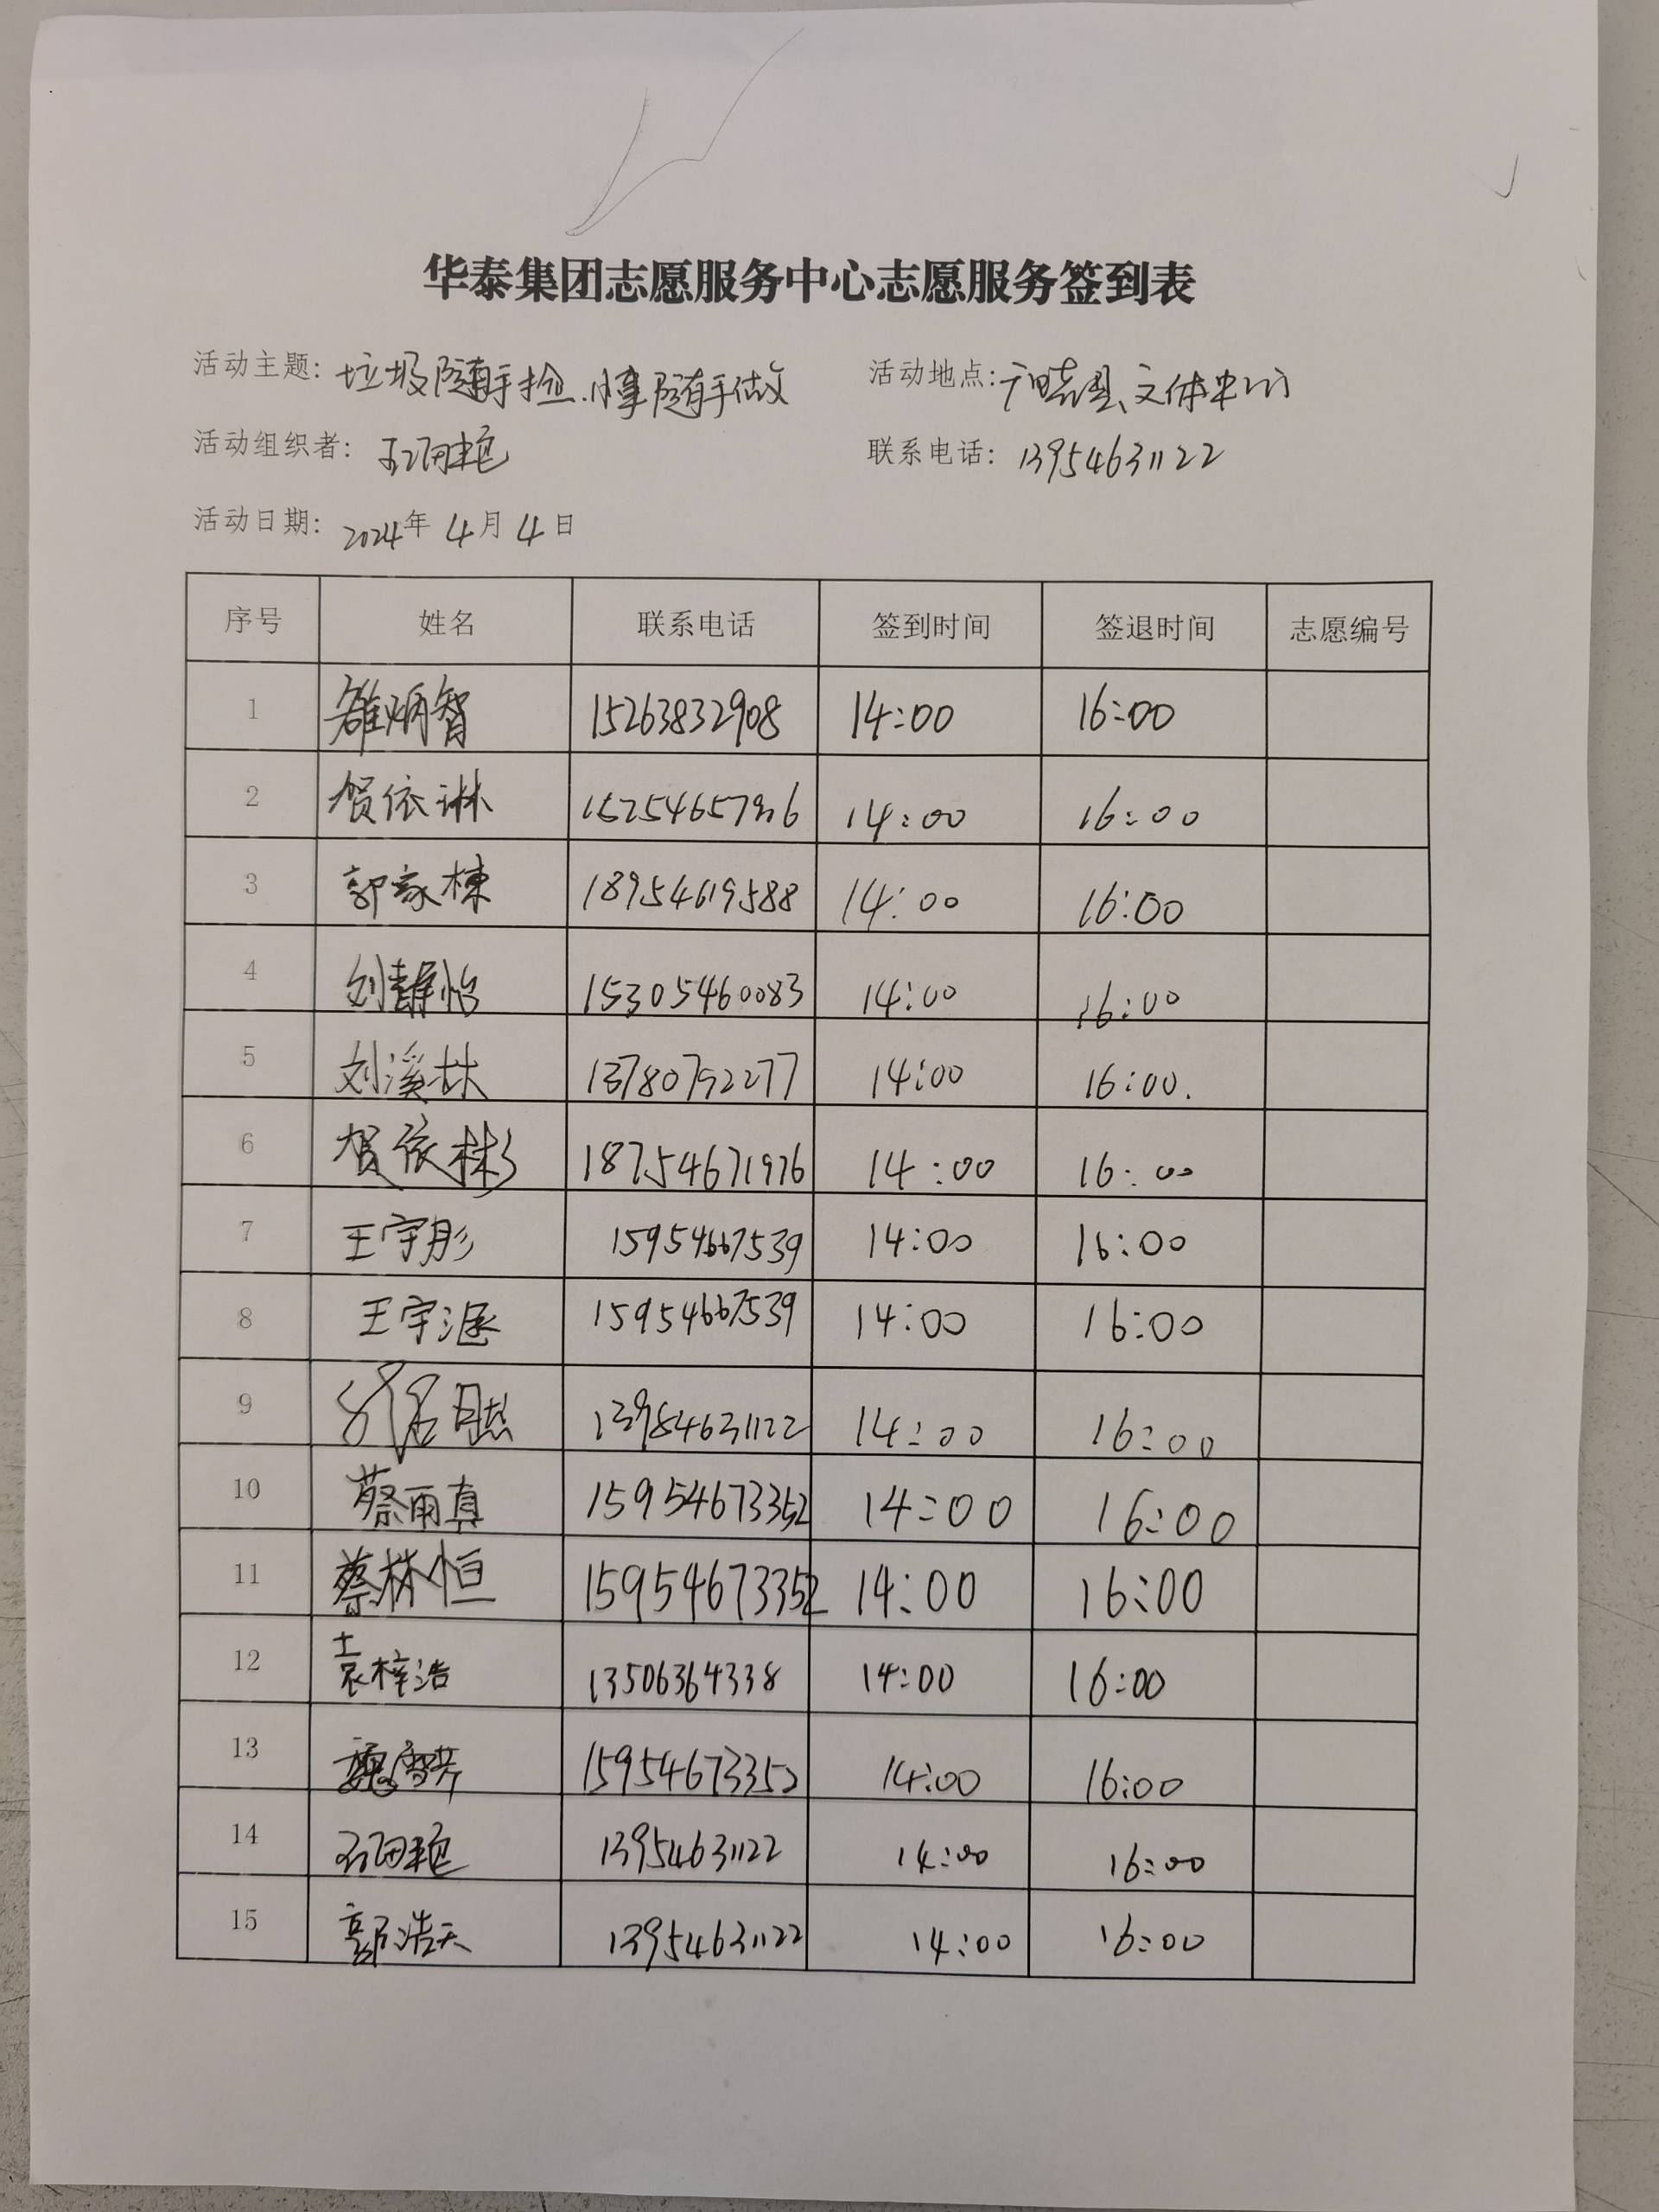 华泰集团志愿服务中心志愿服务签到表
活动主题: 垃圾随手捡.小事随手做 活动地点: 广饶县文体中心
活动组织者: 联系电话: 13954631122
活动日期: 2024年 4月 4日
序号 姓名 联系电话 签到时间 签退时间 志愿编号
1 雒炳智 15263832908 14:00 16:00
2 贺依琳 14:00 16:00
3 郭家栋 18954619588 14:00 16:00
4 刘静怡 15305460083 14:00 16:00
5 刘溪林 13780792277 14:00 16:00.
6 贺依彬 18754671976 14:00 16:00
7 王宇彤 15954667539 14:00 16:00
8 王宇涵 15954667539 14:00 16:00
9 14:00 16:00
10 蔡雨真 15954673352 14:00 16:00
11 蔡林恒 15954673352 14:00 16:00
12 袁梓浩 13506364338 14:00 16:00
13 15954673352 14:00 16:00
14 13954631122 14:00 16:00
15 郭浩天 13954631122 14:00 16:00